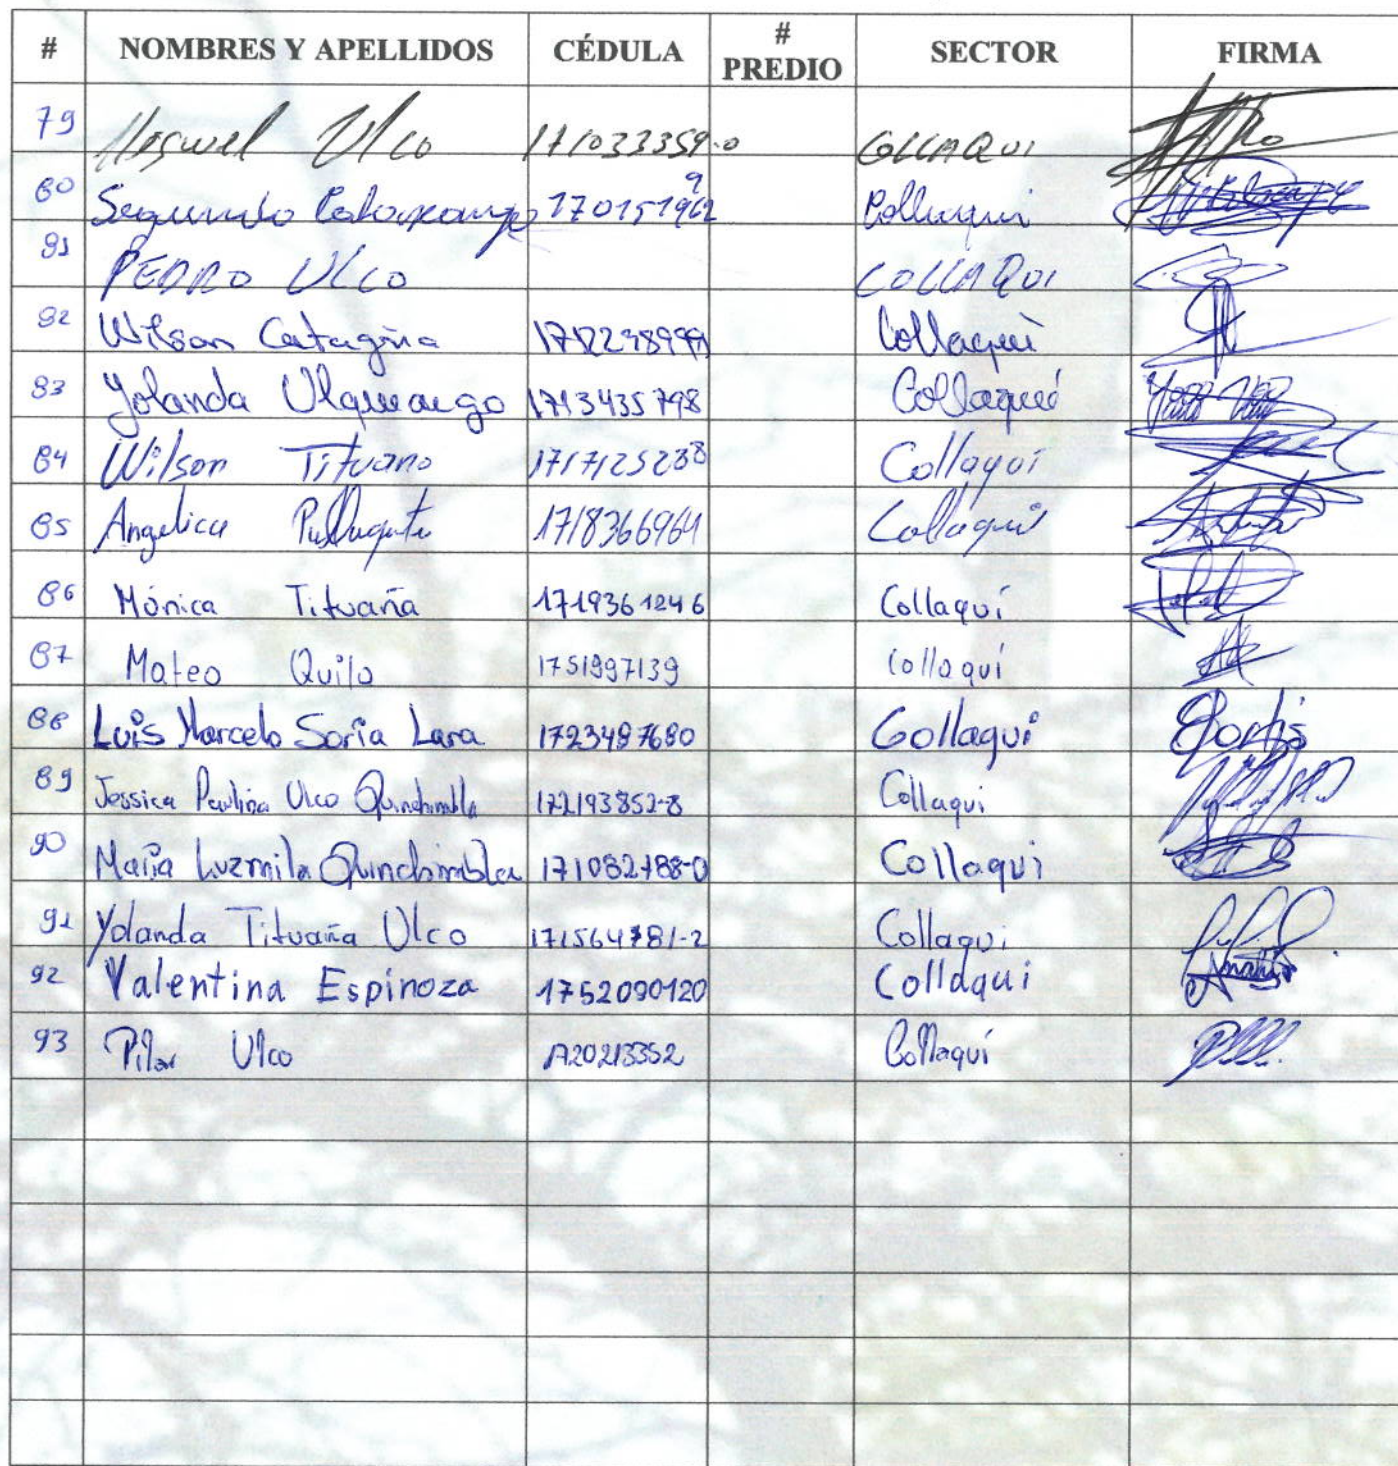 # NOMBRES Y APELLIDOS CÉDULA # PREDIO SECTOR FIRMA
79 Ulco 171033359-0 COLLAQUI
80 Segundo Collaqui
81 PEDRO ULCO COLLAQUI
82 Wilson Catagña Collaquì
83 Yolanda Ulquiango 1713435798 Collaquí
84 Wilson Tituano 1717125238 Collaqui
85 Angelica 1718366964 Collaqui
86 Mónica Tituaña 1719361246 Collaquí
87 Mateo Quilo 1751997139 Collaquí
88 Luis Marcelo Soria Lara 1723497680 Collaqui
89 Jessica Paulina Ulco Quinchimbla 172193852-8 Collaqui
90 María Luzmila Quinchimbla 171082788-0 Collaqui
91 Yolanda Tituaña Ulco 171564781-2 Collaqui
92 Valentina Espinoza 1752090120 Collaqui
93 Pilar Ulco Collaquí